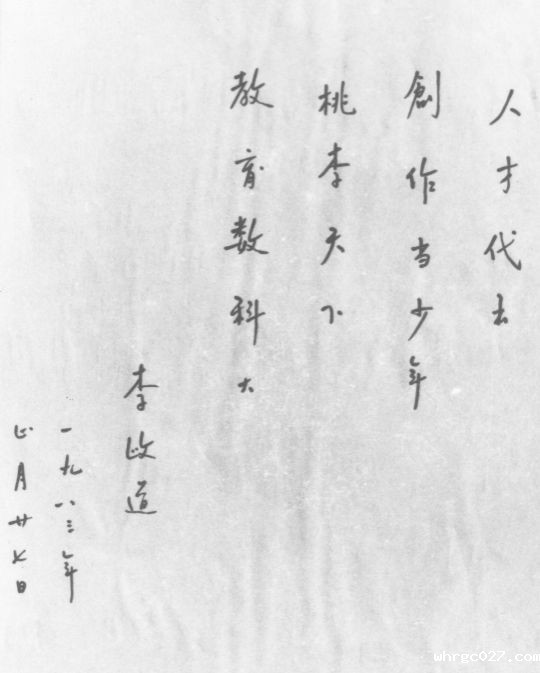 人才代出
創作当少年
桃李天下
教育数科大
李政道
一九八三年
正月廿七日
whrgc027.com